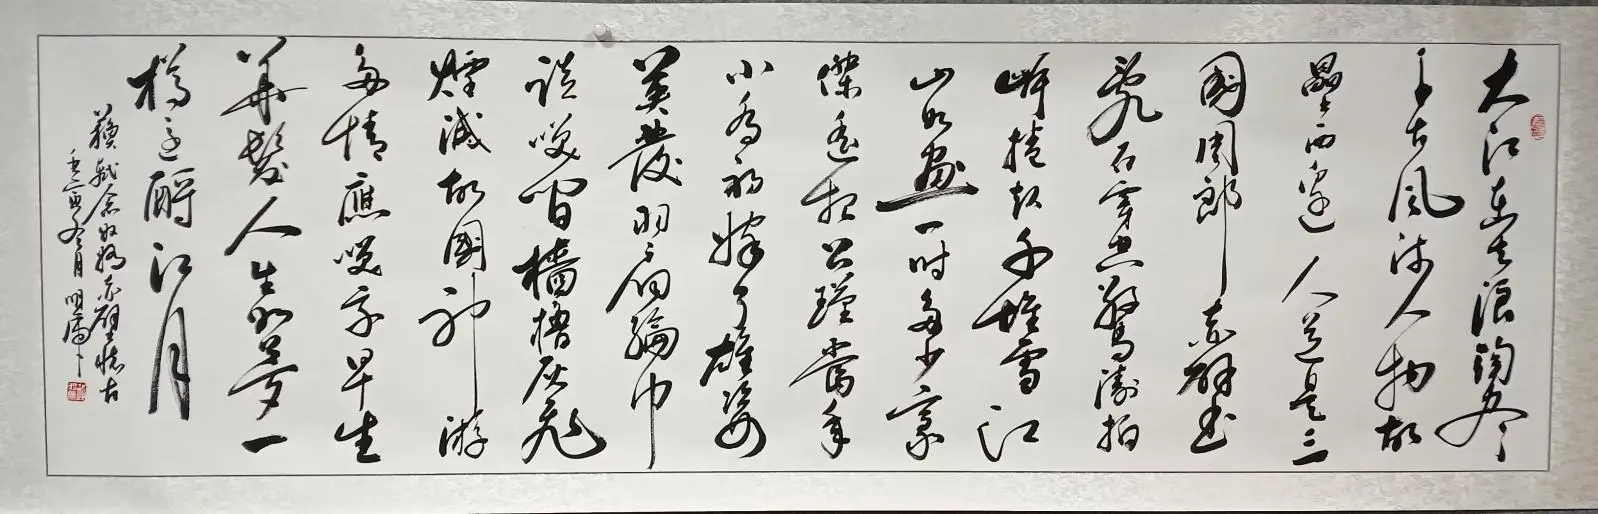 大江東去浪淘盡
千古風流人物故
壘西邊人道是三
國周郎赤壁
亂石穿空驚濤拍
岸捲起千堆雪江
山如畫一時多少豪
傑遙想公瑾當年
小喬初嫁了雄姿
英發羽扇綸巾
談咲間檣櫓灰飛
煙滅故國神游
多情應咲我早生
華髮人生如夢一
樽還酹江月
蘇軾念奴嬌赤壁懷古
壬寅冬月